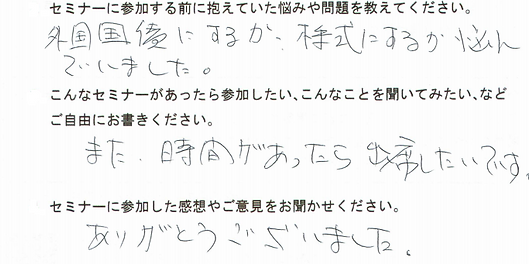 セミナーに参加する前に抱えていた悩みや問題を教えてください。
外国国債にするか、株式にするか悩ん
でいました。
こんなセミナーがあったら参加したい、こんなことを聞いてみたい、など
ご自由にお書きください。
また、時間があったら出席したいです。
セミナーに参加した感想やご意見をお聞かせください。
ありがとうございました。